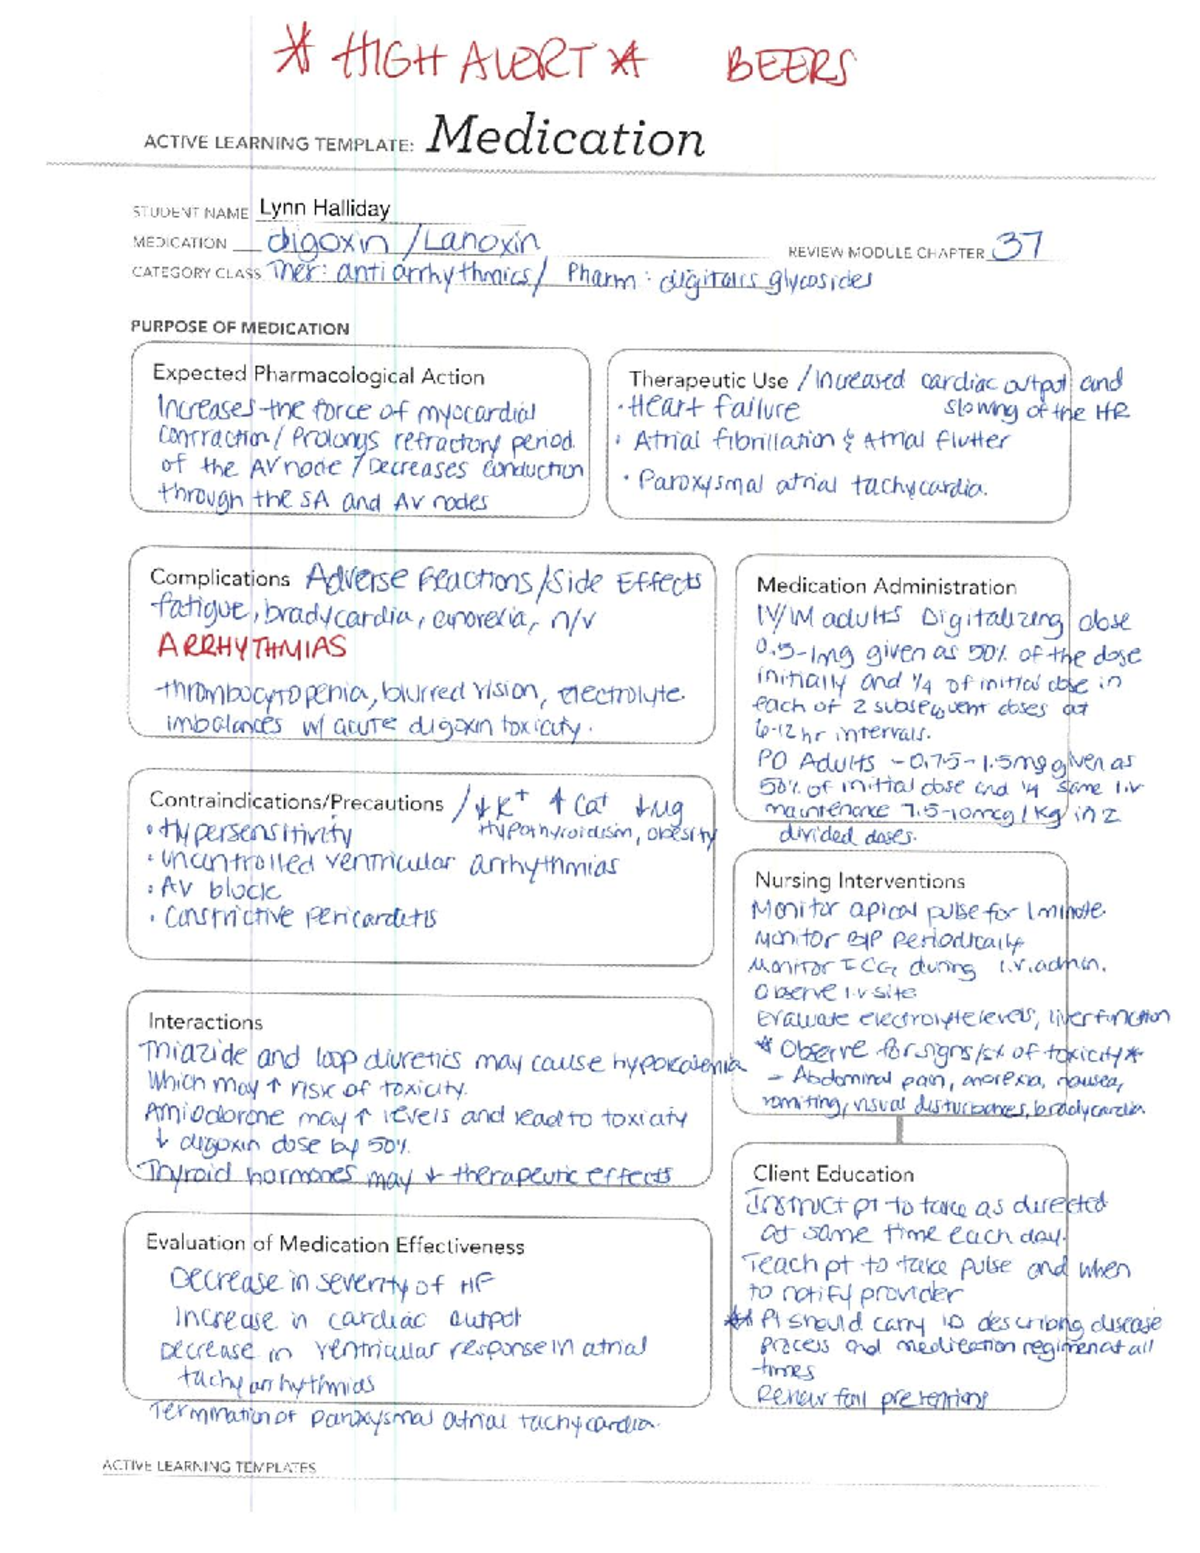 * HIGH ALERT * BEERS
ACTIVE LEARNING TEMPLATE: Medication
STUDENT NAME Lynn Halliday
MEDICATION digoxin / Lanoxin
REVIEW MODULE CHAPTER 37
CATEGORY CLASS Ther: antiarrhythmics / Pharm: digitalis glycosides
PURPOSE OF MEDICATION
Expected Pharmacological Action
Increases the force of myocardial
contraction / Prolongs refractory period
of the AV node / Decreases conduction
through the SA and AV nodes
Therapeutic Use / Increased cardiac output and
slowing of the HR
· Heart failure
· Atrial fibrillation & Atrial flutter
· Paroxysmal atrial tachycardia.
Complications Adverse Reactions/Side Effects
fatigue, bradycardia, anorexia, n/v
ARRHYTHMIAS
thrombocytopenia, blurred vision, electrolyte
imbalances w/ acute digoxin toxicity.
Contraindications/Precautions / ↓K+ ↑Ca+ ↓Mg
Hypothyroidism, obesity
· Hypersensitivity
· Uncontrolled ventricular arrhythmias
· AV block
· Constrictive pericarditis
Interactions
Thiazide and loop diuretics may cause hypokalemia
which may ↑ risk of toxicity.
Amiodorone may ↑ levels and lead to toxicity
↓ digoxin dose by 50%.
Thyroid hormones may ↓ therapeutic effects
Evaluation of Medication Effectiveness
Decrease in severity of HF
Increase in cardiac output
Decrease in ventricular response in atrial
tachyarrhythmias
Termination of paroxysmal atrial tachycardia.
Medication Administration
IV/IM adults Digitalizing dose
0.5-1mg given as 50% of the dose
initially and 1/4 of initial dose in
each of 2 subsequent doses at
6-12 hr intervals.
PO Adults - 0.75-1.5mg given as
50% of initial dose and 1/4 same I.V
maintenance 7.5-10mcg/kg in 2
divided doses.
Nursing Interventions
Monitor apical pulse for 1 minute.
Monitor B/P periodically
Monitor ECG during I.V. admin.
Observe I.V site
Evaluate electrolyte levels, liver function
* Observe for signs/sx of toxicity *
- Abdominal pain, anorexia, nausea,
vomiting, visual disturbances, bradycardia
Client Education
Instruct pt to take as directed
at same time each day.
Teach pt to take pulse and when
to notify provider
** Pt should carry ID describing disease
process and medication regimen at all
times
Review fall
ACTIVE LEARNING TEMPLATES